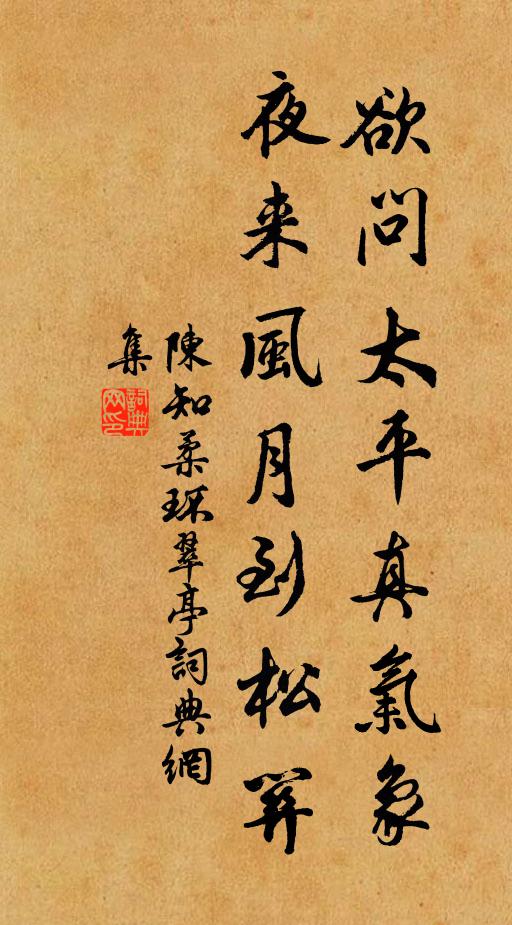 欲問太平真氣象
夜来風月到松關
陳知柔环翠亭詞典網
集
詞典
网印